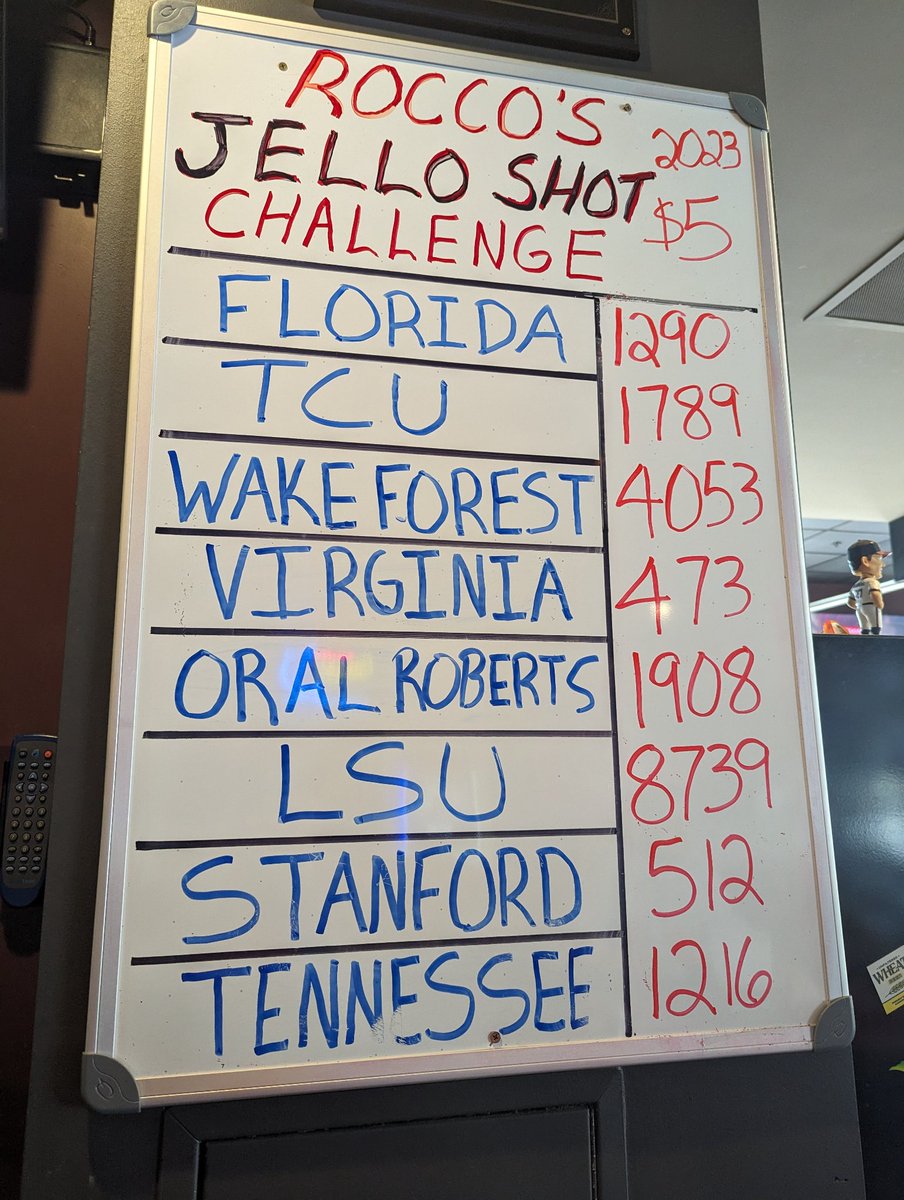 ROCCO'S
JELLO SHOT 2023
CHALLENGE $5
FLORIDA 1290
TCU 1789
WAKE FOREST 4053
VIRGINIA 473
ORAL ROBERTS 1908
LSU 8739
STANFORD 512
TENNESSEE 1216